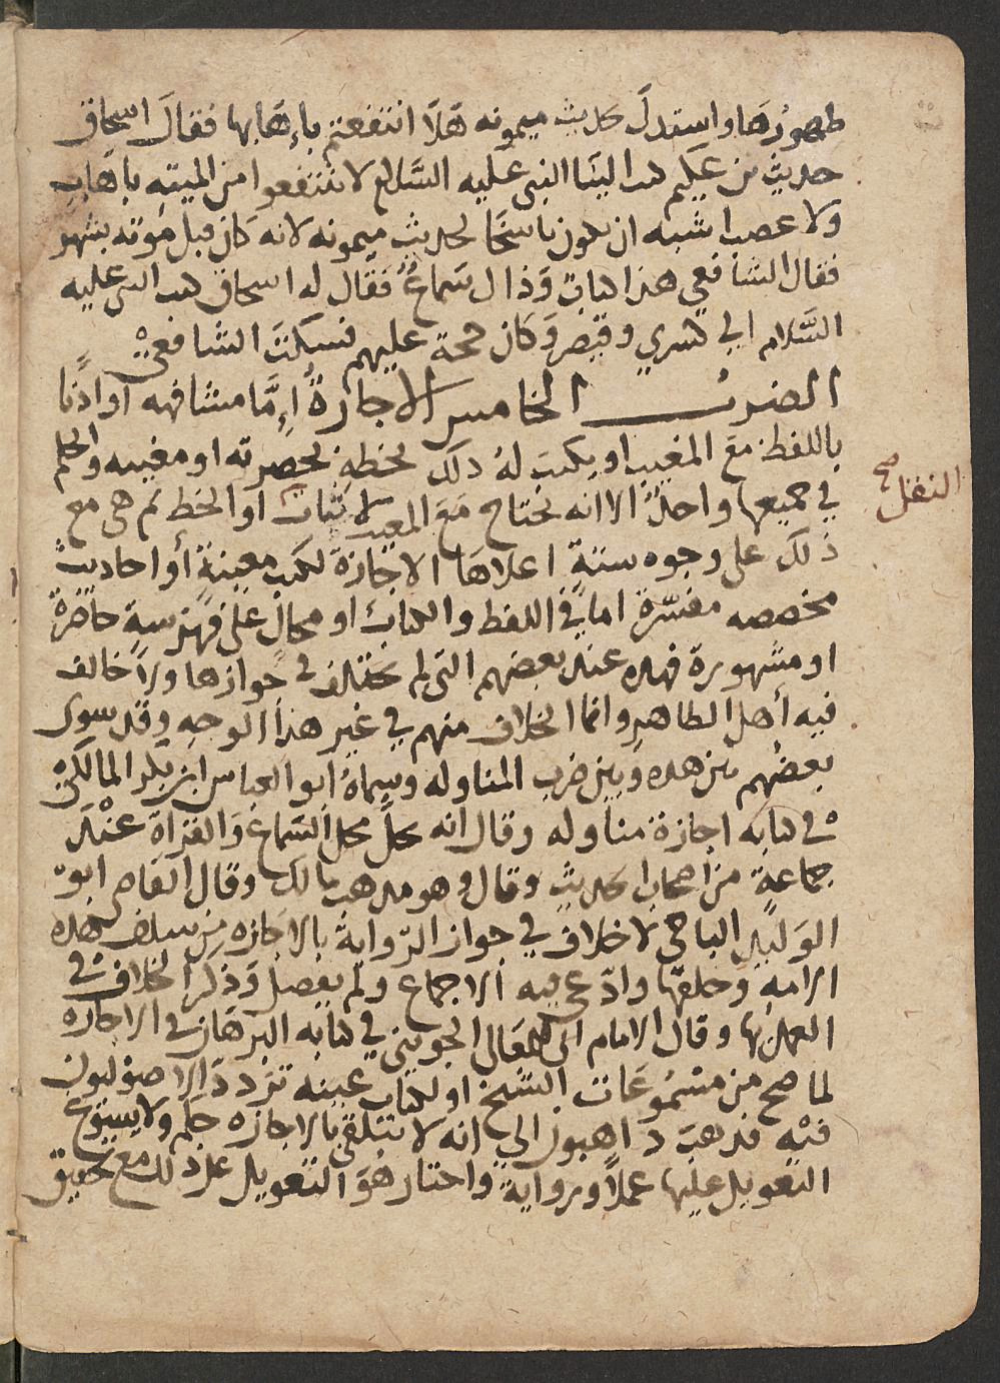 طهورها واستدل بحديث ميمونه هلا انتفعتم بإهابها فقال اسحاق
حديث بن عكيم كتب الينا النبي عليه السلام لا تنتفعوا من الميته باهاب
ولا عصب اشبه ان يكون ناسخا لحديث ميمونه لانه كان قبل موته بشهر
فقال الشافعي هذا كتاب وذاك سماع فقال له اسحاق كتب النبي عليه
السلام الي كسري وقيصر وكان حجة عليهم فسكت الشافعي
الضرب الخامس الاجازة إما مشافهه او اذنا
باللفظ مع المغيب او يكتب له ذلك بخطه بحضرته او مغيبه والحكم
في جميعها واحد الا انه يحتاج مع المغيب لاثبات النقل صح او الخط ثم هي مع
ذلك على وجوه ستة اعلاها الاجازة لكتب معينة أو احاديث
مخصصه مفسرة اما في اللفظ والكتاب او محال على فهرسة حاضرة
او مشهورة فهذه عند بعضهم التي لم يختلف في جوازها ولا خالف
فيه أهل الظاهر وانما الخلاف منهم في غير هذا الوجه وقد سوى
بعضهم بين هذه وبين ضرب المناوله وسماه ابو العباس ابن بكر المالكي
في كتابه اجازة مناوله وقال انه يحل محل السماع والقراة عند
جماعة من أصحاب الحديث وقال وهو مذهب مالك وقال القاضي ابو
الوليد الباجي لا خلاف في جواز الرواية بالاجازه من سلف هذه
الامه وخلفها وادعى فيه الاجماع ولم يفصل وذكر الخلاف في
العمل بها وقال الامام ابو المعالي الجويني في كتابه البرهان في الاجازه
لما صح من مسموعات الشيخ او لكتاب عينه تردد الاصوليون
فيه فذهب ذاهبون الي انه لا يتلقى بالاجازه حكم ولا يسوغ
التعويل عليها عملا ورواية واختار هو التعويل على ذلك مع تحقيق